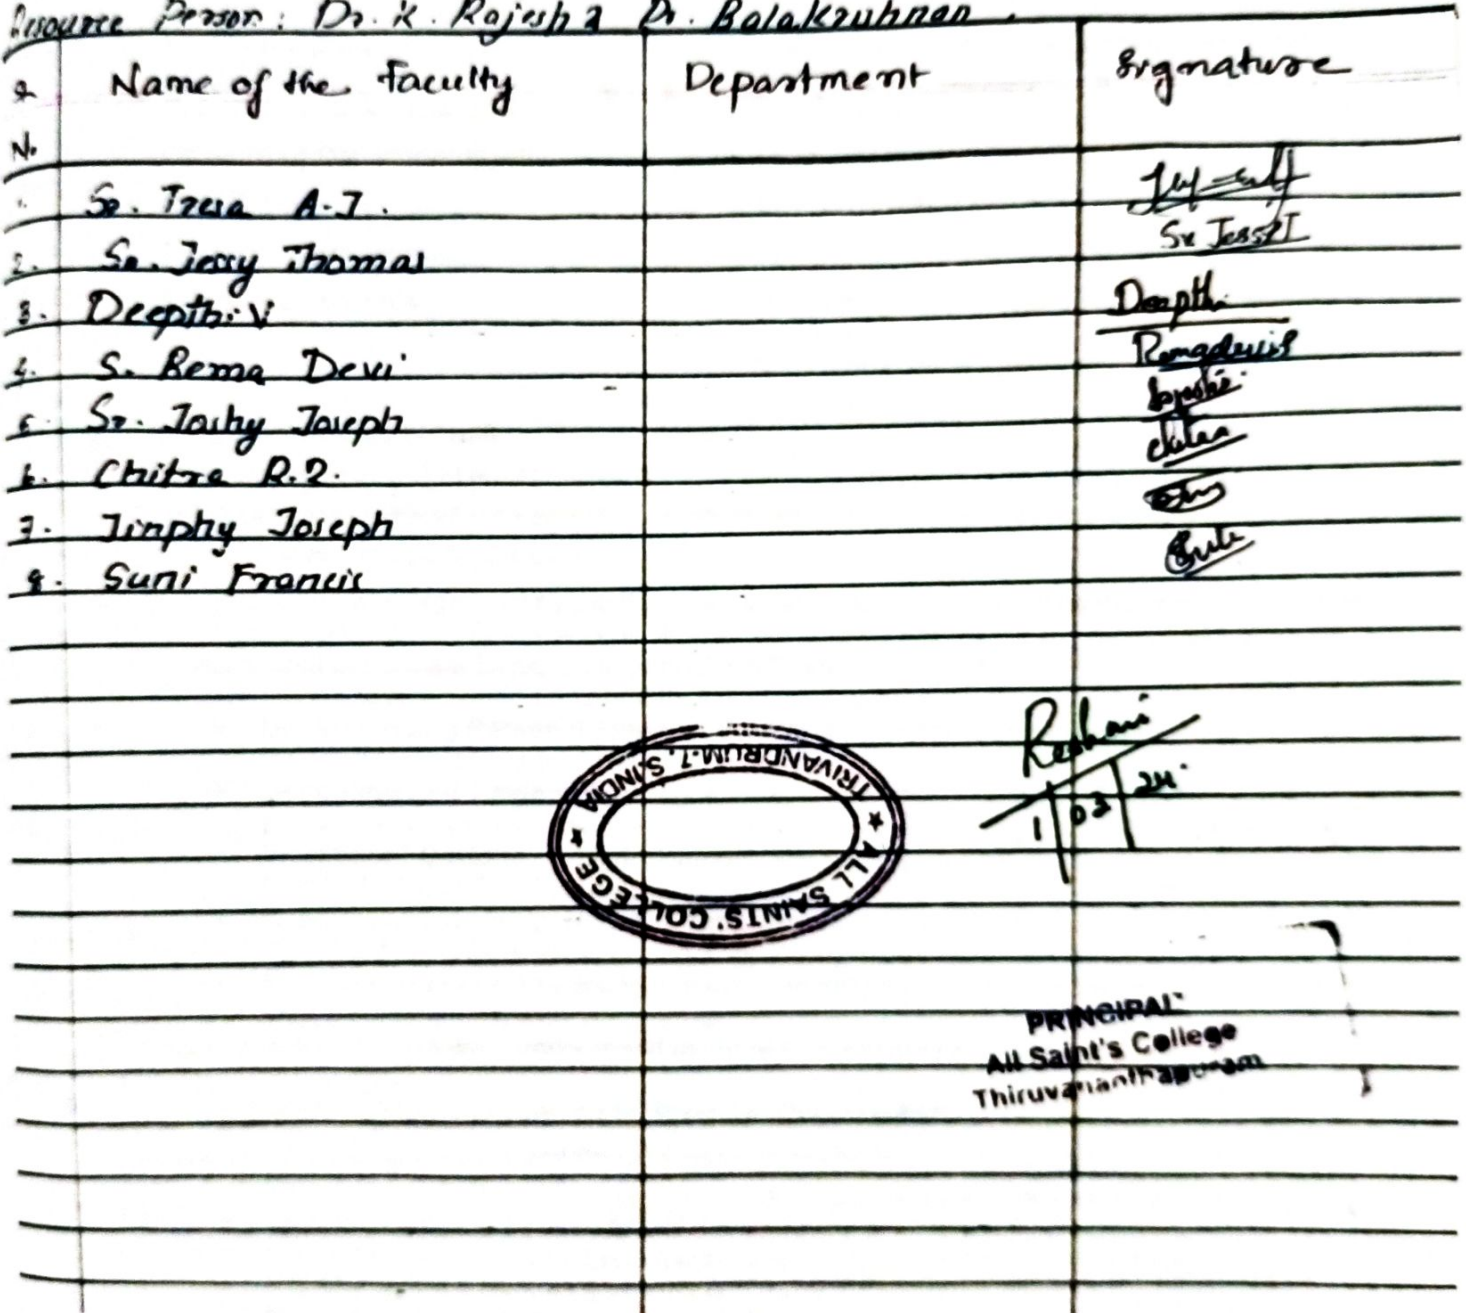 Resource Person: Dr. K. Rajesh & Dr. Balakrishnan.
Sl. Name of the Faculty Department Signature
N.
1. Sr. Tresa A.J.
2. Sr. Jessy Thomas Sr Jessy T
3. Deepthi V Deepthi
4. S. Rema Devi Remadevi S
5. Sr. Joshy Joseph
6. Chitra R.R. Chitra
7. Jinphy Joseph
8. Suni Francis
Reshmi
1/03/24.
TRIVANDRUM-7, S.INDIA
★ ALL SAINTS' COLLEGE ★
PRINCIPAL
All Saint's College
Thiruvananthapuram